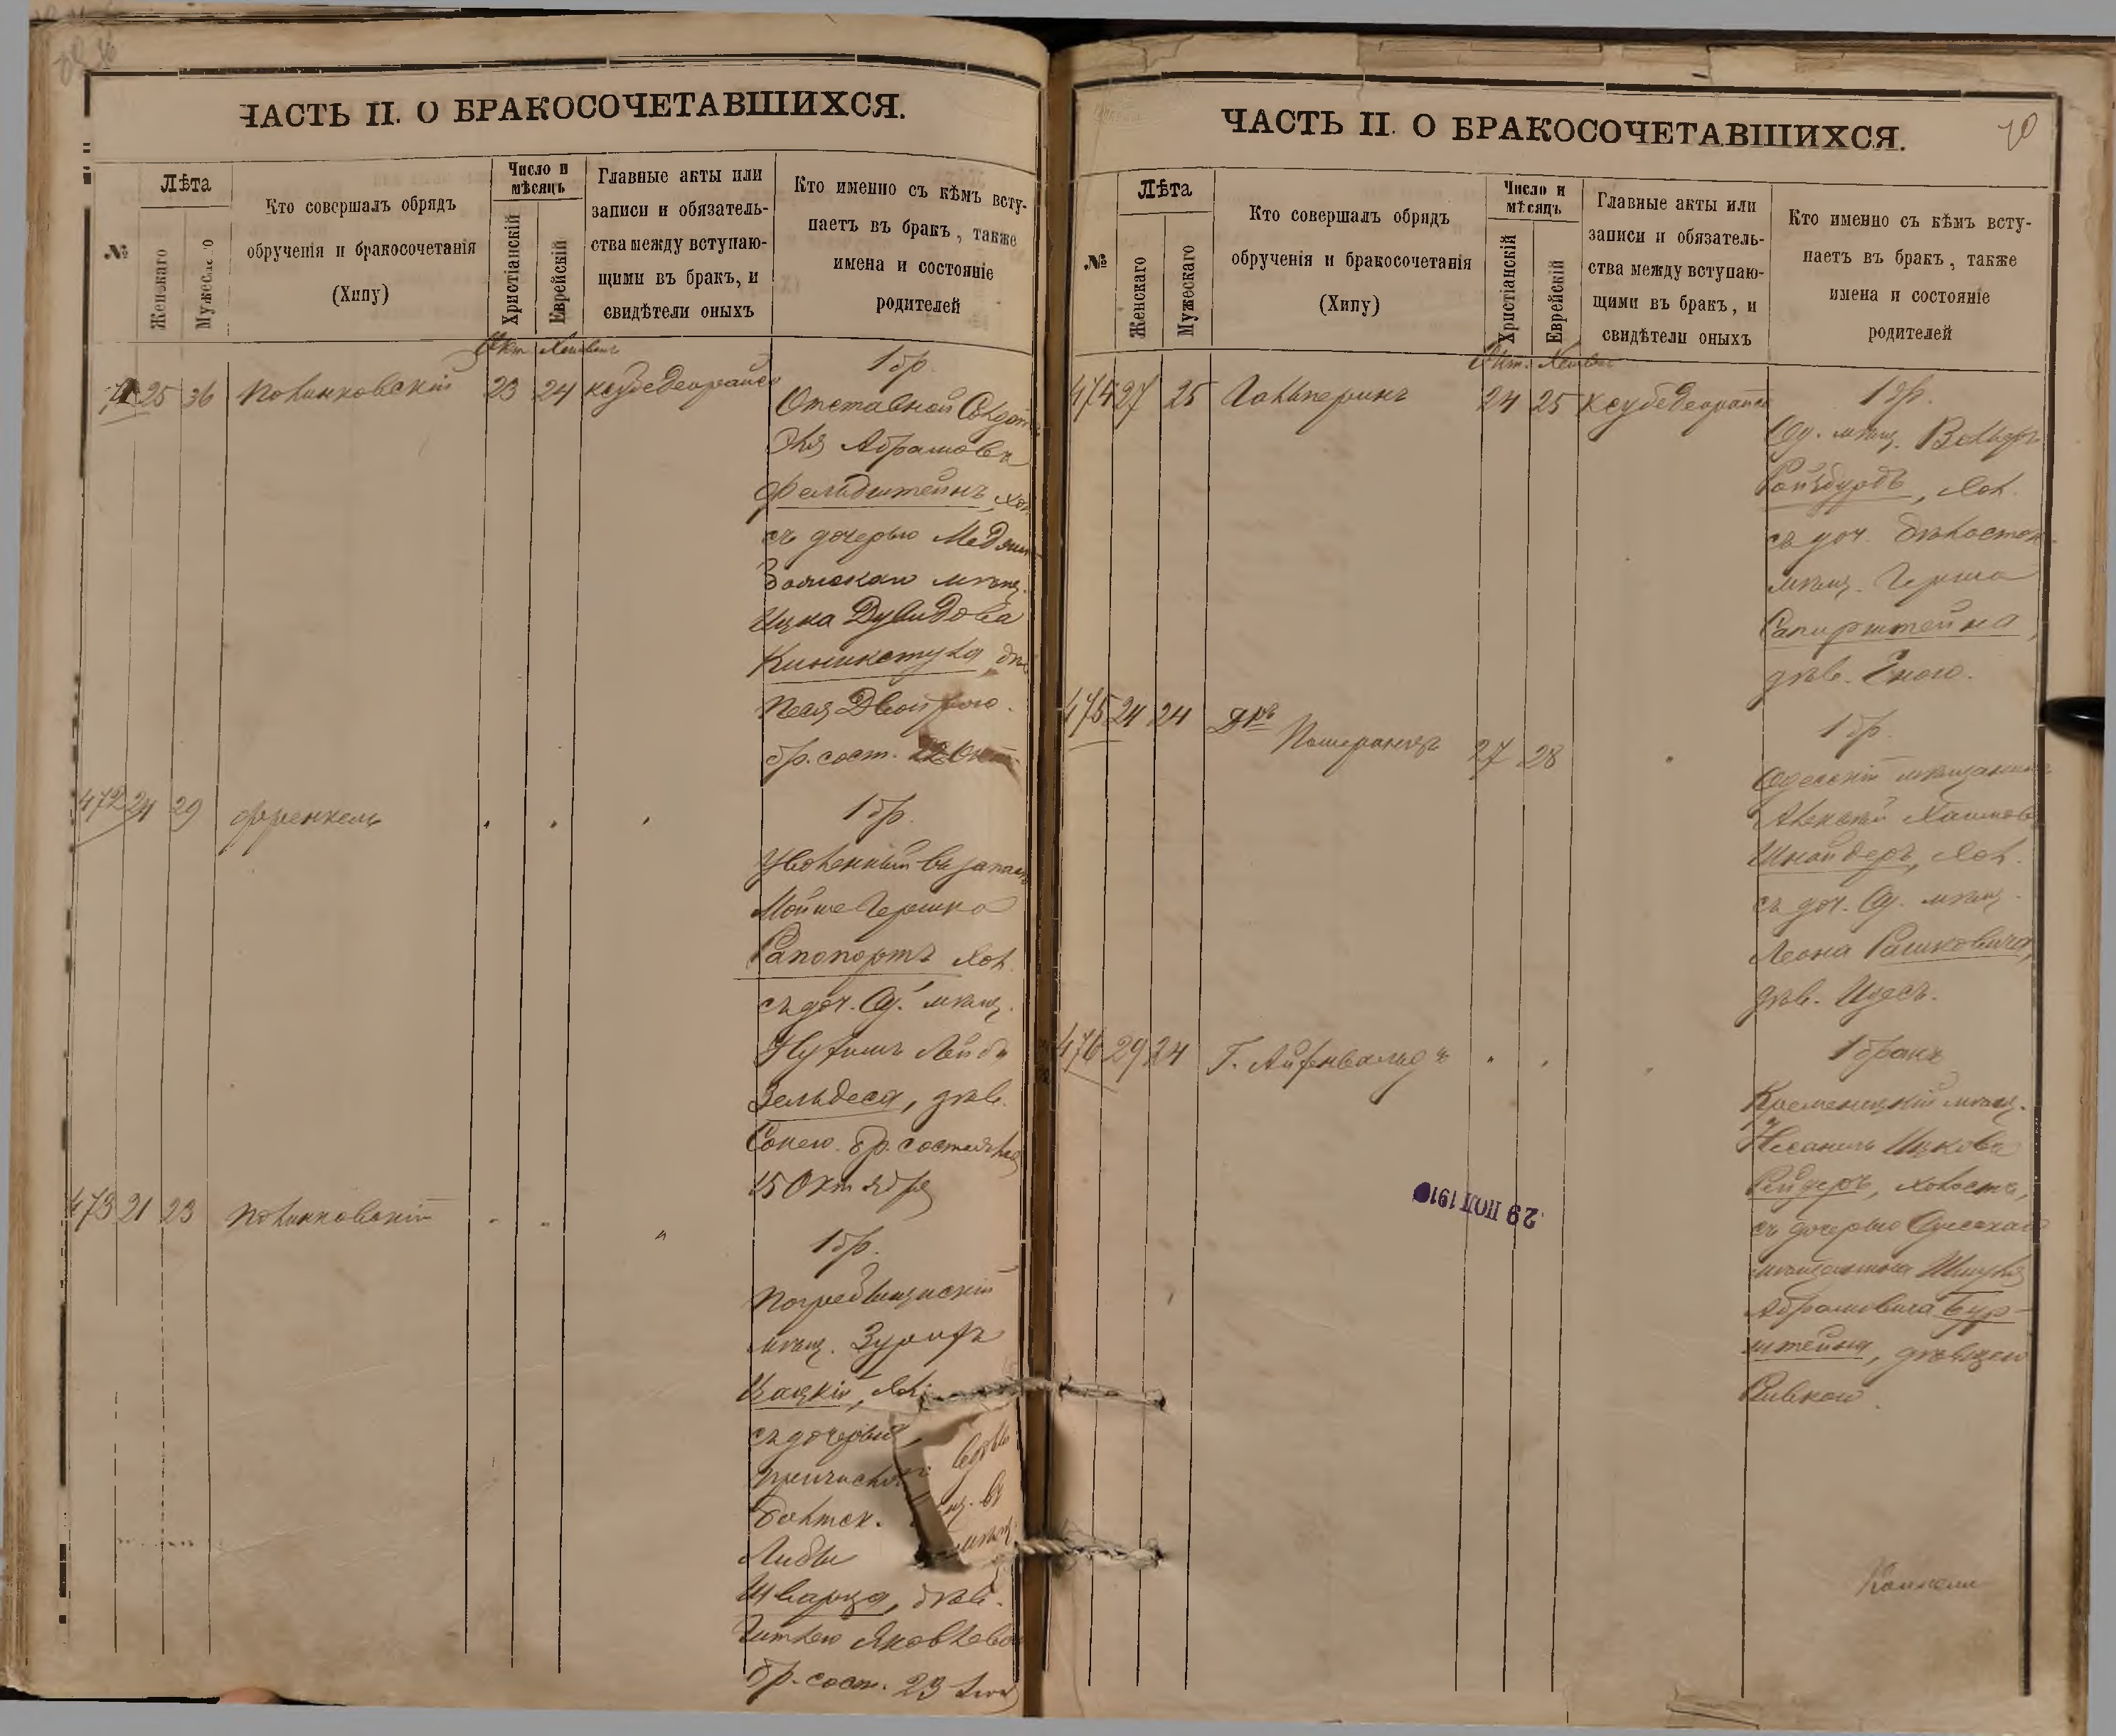 ЧАСТЬ II. О БРАКОСОЧЕТАВШИХСЯ.
№
Лѣта
Женскаго
Мужескаго
Кто совершалъ обрядъ
обрученія и бракосочетанія
(Хипу)
Число и
мѣсяцъ
Христіанскій
Еврейскій
Главные акты или
записи и обязатель-
ства между вступаю-
щими въ бракъ, и
свидѣтели оныхъ
Кто именно съ кѣмъ всту-
паетъ въ бракъ, также
имена и состояніе
родителей
Окт.
25 36 Полинковскій 23 24
1 бр.
Отставной
Абрамовъ
Фельдштейнъ, хол.
съ дочерью
мѣщ.
Ицка Дувидова
Песя
бр. сост.
472 21 29 Френкель
1 бр.
Уволенный въ запасъ
Мойше Гершко
Рапопортъ хол.
съ доч. Од. мѣщ.
Нухимъ Лейба
Зельдеса, дѣв.
Сонею. бр. состоялся
15 Октября
473 21 23 Полинковскій "
1 бр.
Погребищискій
мѣщ.
Кацкій, хол.
съ дочерью
Балтск.
Либы
Шварца, дѣв.
Гитлею Яковлево
бр. сост. 23
ЧАСТЬ II. О БРАКОСОЧЕТАВШИХСЯ.
70
№
Лѣта
Женскаго
Мужескаго
Кто совершалъ обрядъ
обрученія и бракосочетанія
(Хипу)
Число и
мѣсяцъ
Христіанскій
Еврейскій
Главные акты или
записи и обязатель-
ства между вступаю-
щими въ бракъ, и
свидѣтели оныхъ
Кто именно съ кѣмъ всту-
паетъ въ бракъ, также
имена и состояніе
родителей
Окт.
474 27 25 Гальперинъ 24 25
1 бр.
Од. мѣщ. Вольфъ
Ройзбурдъ, хол.
съ доч.
мѣщ. Герша
Сапирштейна,
дѣв. Енею.
475 21 24 Д-ръ Померанцъ 27 28
1 бр.
Одесскій мѣщанинъ
Хаимовъ
Шнайдеръ, хол.
съ доч. Од. мѣщ.
Леона Рашковича,
дѣв. Идесъ.
476 29 24 Г. Айзенвальдъ
1 бракъ
Кременецкій мѣщ.
Ицковъ
Рейдеръ, холостъ,
съ дочерью Одесскаго
мѣщанина Шмуля
Абрамовича Бур-
штейна, дѣвицею
Ривкою.
29 ІЮЛ 1910